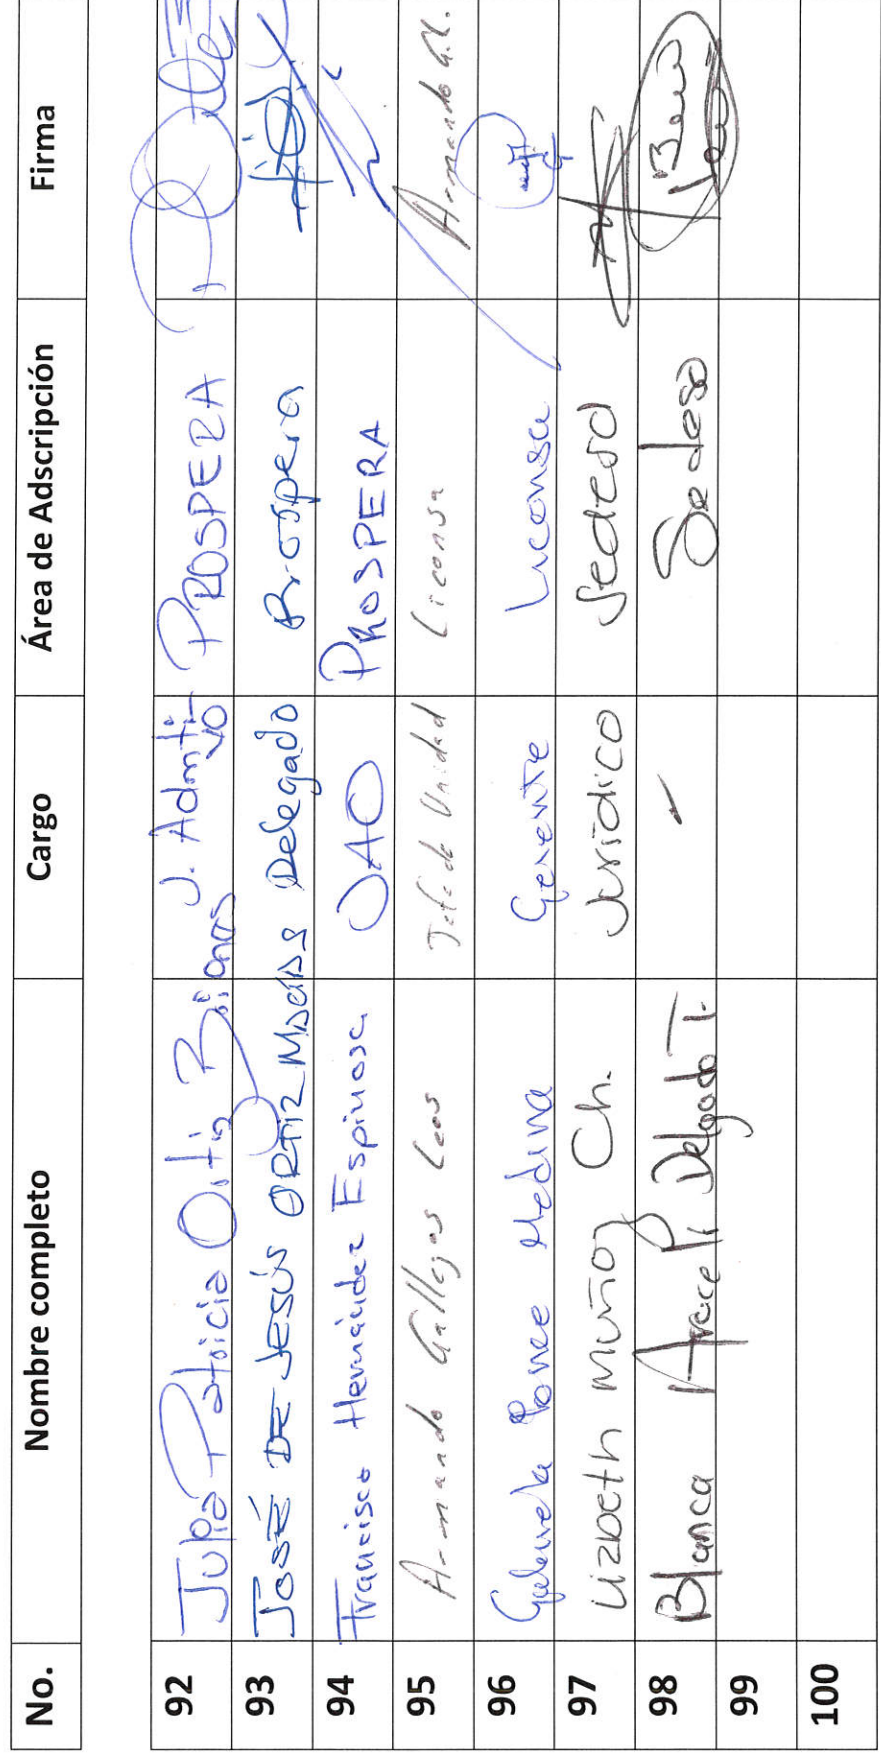 No. Nombre completo Cargo Área de Adscripción Firma
92 Julia Patricia Ortiz Briones J. Admti-vo PROSPERA
93 JOSÉ DE JESÚS ORTIZ MACÍAS Delegado Prospera
94 Francisco Hernández Espinosa JAO PROSPERA
95 Armando Gallegos Leos Jefe de Unidad Liconsa Armando G.L.
96 Gabriela Ponce Medina Gerente Liconsa
97 Lizbeth Muñoz Ch. Jurídico Sedesol
98 Blanca Araceli Delgado T. - Sedeso
99
100